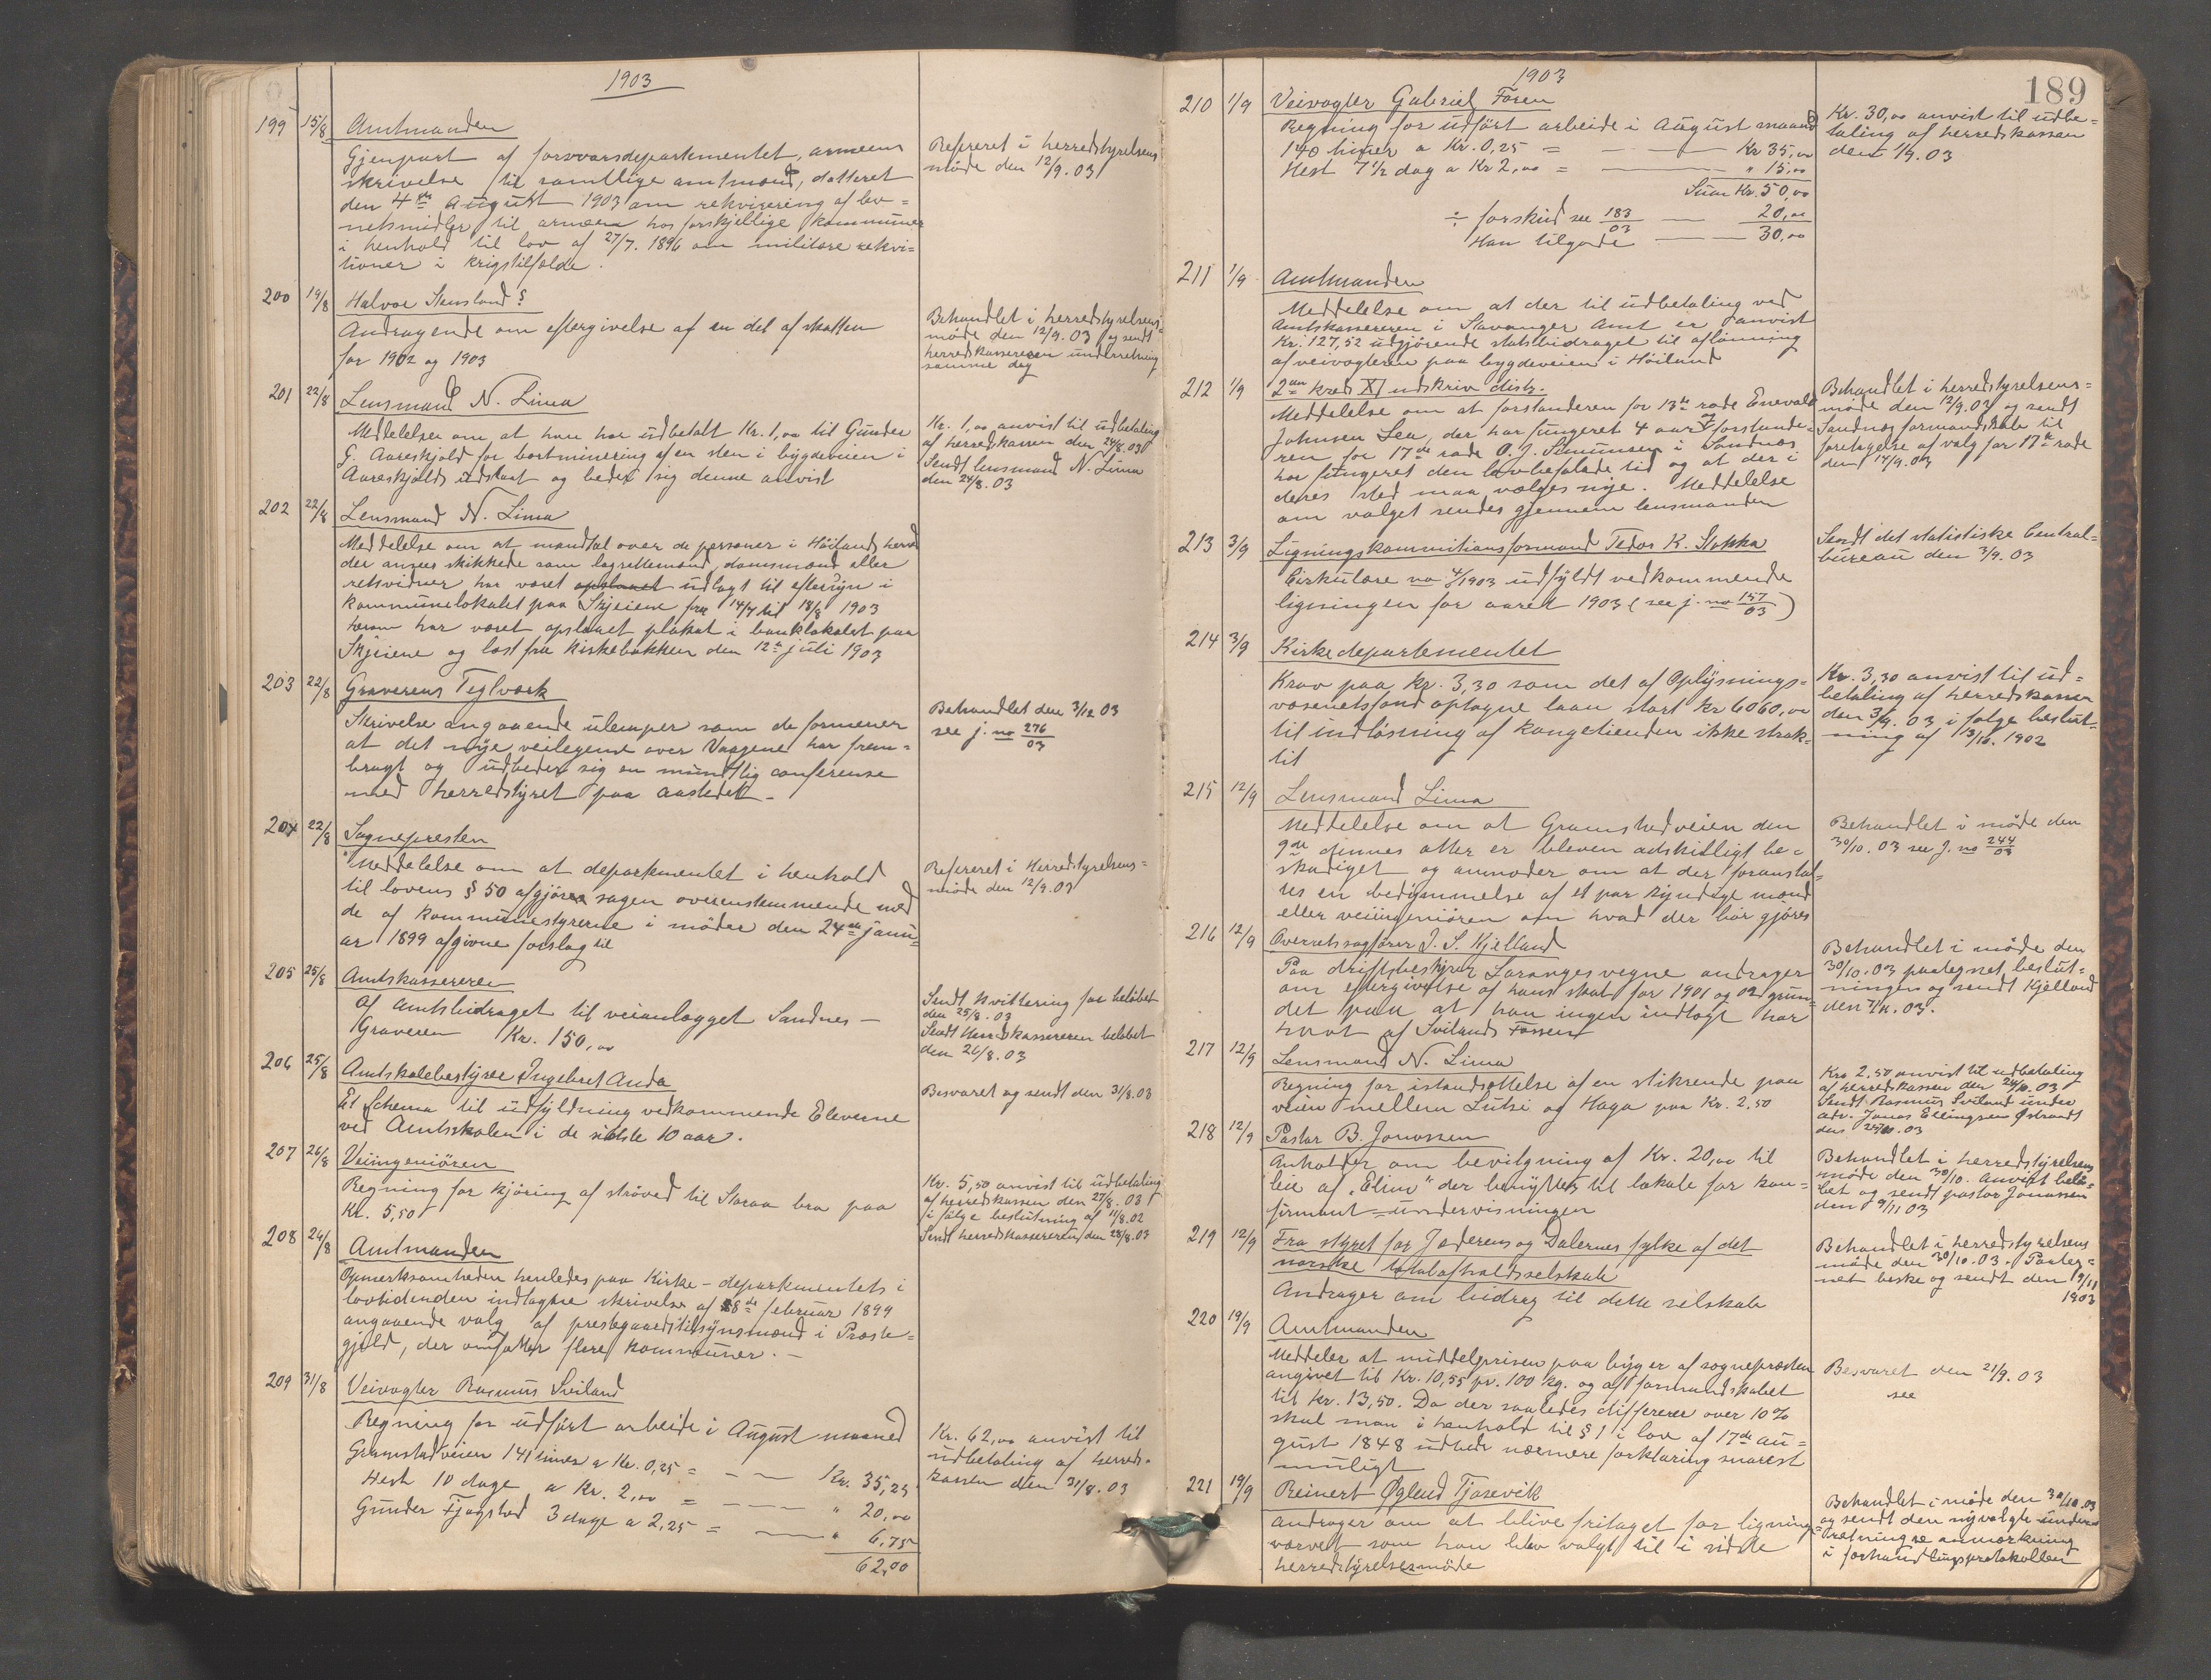 1903
199 15/8 Amtmanden
Gjenpart af forsvarsdepartementet, armeens
skrivelse til samtlige amtmænd, datteret
den 4de August 1903 om rekvirering af lev=
netsmidler til armeen hos forskjellige kommuner
i henhold til lov af 27/7. 1896 om militære rekvi=
tioner i krigstilfælde.
Refereret i herredstyrelsens
møde den 12/9. 03
200 19/8 Halvor Stensland
Andragende om eftergivelse af en del af skatten
for 1902 og 1903
Behandlet i herredstyrelsens=
møde den 12/9. 03 og sendt
herredskassereren underretning
samme dag
201 22/8 Lensmand N. Lima
Meddelelse om at han har udbetalt Kr. 1,00 til Gunder
G. Aareskjold for bortminering af en sten i bygdeveien i
Aareskjolds udskut og beder sig denne anvist
Kr. 1,00 anvist til udbetaling
af herredskassen den 24/8.03
Sendt lensmand N. Lima
den 24/8. 03
202 22/8 Lensmand N. Lima
Meddelelse om at mandtal over de personer i Höilands herred
der ansees skikkede som lagrettemænd, domsmænd eller
retsvidner har været opslaaet udlagt til eftersyn i
kommunelokalet paa Skjeiene fra 14/7 til 18/8 1903
herom har været opslaaet plakat i banklokalet paa
Skjeiene og læst fra kirkebakken den 12te juli 1903
203 22/8 Graverens Teglværk
Skrivelse angaaende ulemper som de formener
at det nye veilegeme over Vaagene har frem=
bragt og udbeder sig en mundtlig conferense
med herredstyret paa aastedet.
Behandlet den 3/12 03
see j. no 276/03
204 22/8 Sognepresten
Meddelelse om at departementet i henhold
til lovens § 50 afgjøres sagen overenstemmende med
de af kommunestyrerne i møder den 24de janu=
ar 1899 afgivne forslag til
Refereret i Herredstyrelsens=
møde den 12/9.03
205 25/8 Amtskassereren
Af amtsbidraget til veianlægget Sandnes —
Graveren Kr. 150,00
Sendt kvittering for beløbet
den 25/8. 03
Sendt Herredskassereren beløbet
den 26/8. 03
206 25/8 Amtskolebestyrer Ingebret Anda
Et Schema til udfyldning vedkommende Eleverne
ved Amtsskolen i de sidste 10 aar.
Besvaret og sendt den 31/8.03
207 26/8 Veiingeniören
Regning for kjöring af ströved til Staraa bro paa
Kr. 5,50
Kr. 5,50 anvist til udbetaling
af herredskassen den 27/8. 03
i følge beslutning af 11/8.02
Sendt herredskassereren den 28/8.03
208 26/8 Amtmanden
Opmerksomheden henledes paa Kirke-departementets i
lovtidenden indtagne skrivelse af 8de februar 1899
angaaende valg af prestegaardstilsynsmænd i Præste=
gjeld, der omfatter flere kommuner. —
209 31/8 Veivogter Rasmus Sviland
Regning for udført arbeide i August maaned
Gramstadveien 141 timer a Kr. 0,25 = — — Kr. 35,25
Hest 10 dage a Kr. 2,00 = — — " 20,00
Gunder Fjogstad 3 dage a 2,25 = — " 6,75
62,00
Kr. 62,00 anvist til
udbetaling af herreds-
kassen den 31/8. 03
1903
189
210 1/9 Veivogter Gabriel Fosen
Regning for udfört arbeide i August maaned
140 timer a Kr. 0,25 = — — Kr 35,00
Hest 7 1/2 dag a Kr 2,00 = — " 15,00
Sum Kr. 50,00
÷ forskud see 183/03 — 20,00
Han tilgode — — 30,00
Kr. 30,00 anvist til udbe=
taling af herredskassen
den 1/9. 03
211 1/9 Amtmanden
Meddelelse om at der til udbetaling ved
Amtskassereren i Stavanger Amt er anvist
Kr. 127,52 udgjörende statsbidraget til aflönning
af veivogteren paa bygdeveien i Höiland
212 1/9 2den kreds XI udskriv. distr.
Meddelelse om at forstanderen for 13de rode Enevald
Johnsen Lea, der har fungeret 4 aar og forstande=
ren for 17de rode O. J. Simunsen i Sandnes
har fungeret den lovbefalede tid og at der i
deres sted maa vælges nye. Meddelelse
om valget sendes gjennem lensmanden
Behandlet i herredstyrelsens=
møde den 12/9.03 og sendt
Sandnes formandskab til
foretagelse af valg for 17de rode
den 14/9.03
213 3/9 Ligningskommitionsformand Tedos K. Stokka
Cirkulære no 4/1903 udfyldt vedkommende
ligningen for aaret 1903 (see j. no 157/03)
Sendt det statistiske Central=
bureau den 3/9. 03
214 3/9 Kirkedepartementet
Krav paa Kr. 3,30 som det af Oplysnings=
væsenetsfond optagne laan stort kr 6060,00
til indløsning af kongetienden ikke strak=
til
Kr. 3,30 anvist til ud=
betaling af herredskassen
den 3/9. 03 i følge beslut=
ning af 13/16. 1902
215 12/9 Lensmand Lima
Meddelelse om at Gramstadveien den
9de dennes atter er bleven adskilligt be=
skadiget og anmoder om at der foranstal=
tes en bedømmelse af et par kyndige mænd
eller veiingeniören om hvad der bør gjøres
Behandlet i møde den
30/10. 03 see J. no 244/03
216 12/9 Overretssagfører J. S. Kjelland
Paa driftsbestyrer Sarangesvegne andrager
om eftergivelse af hans skat for 1901 og 02 grun=
det paa at han ingen indtægt har
havt af Svilands Fossen
Behandlet i møde den
30/10.03 paategnet beslut=
ningen og sendt Kjelland
den 7/11. 03.
217 12/9 Lensmand N. Lima
Regning for istandsættelse af en stikrende paa
veien mellem Lutsi og Haga paa Kr. 2,50
Kr. 2.50 anvist til udbetaling
af herredskassen den 24/10. 03
Sendt Rasmus Sviland under
adr. Jonas Ellingsen Østraadt
den 24/10. 03
218 12/9 Pastor B. Jonassen
Anholder om bevilgning af Kr. 20,00 til
leie af „Elim" der benyttes til lokale for kon=
firmant=undervisningen
Behandlet i herredstyrelsens
møde den 30/10. anvist belø=
bet og sendt pastor Jonassen
den 9/11 03
219 12/9 Fra styret for Jæderens og Dalernes fylke af det
norske totalafholdsselskab
Andrager om bidrag til dette selskab
Behandlet i herredstyrelsens
møde den 30/10.03. Paateg=
net beske og sendt den 9/11
1903
220 19/9 Amtmanden
Meddeler at middelprisen paa byg er af sognepræsten
angivet til Kr. 10,55 pr. 100 kg. og af formandskabet
til Kr. 13,50. Da der saaledes differerer over 10%
skal man i henhold til § 1 i lov af 17de Au=
gust 1848 udbede nærmere forklaring snarest
muligt
Besvaret den 21/9. 03
see
221 19/9 Reinert Øglend Tjosevik
andrager om at blive fritaget for lignings=
værvet som han blev valgt til i sidste
herredstyrelsesmöde
Behandlet i møde den 30/10.03
og sendt den nyvalgte under=
retning se anmærkning
i forhandlingsprotokollen